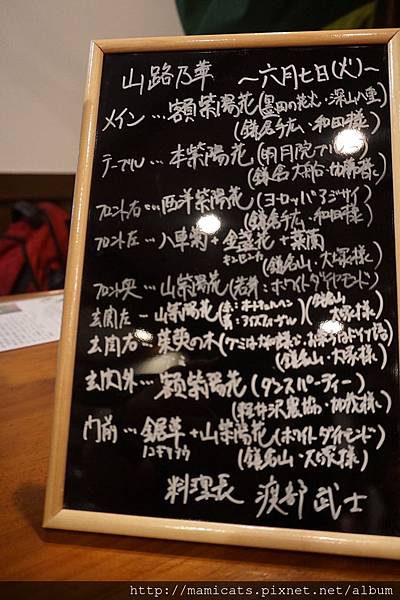 山路乃華 〜六月七日(火)〜
メイン…額紫陽花(墨田の花火・深山八重)
(鎌倉手広・和田様)
テーブル…本紫陽花(明月院ブルー)
(鎌倉大船・加藤様)
フロント右…西洋紫陽花(ヨーロッパアジサイ)
(鎌倉手広・和田様)
フロント左…八車菊+金盞花+葉蘭
キンセンカ
(鎌倉山・大塚様)
フロント央…山紫陽花(岩芽:ホワイトダイヤモンド)
玄関左…山紫陽花
(鎌倉山 大塚様)
玄関右…莢の木
(鎌倉山・大塚様)
玄関外…額紫陽花(ダンスパーティー)
(軽井沢農協・加藤様)
門前…鋸草+山紫陽花(ホワイトダイヤモンド)
ノコギリソウ
(鎌倉山・大塚様)
料理長 渡部武士
http://mamicats.pixnet.net/album